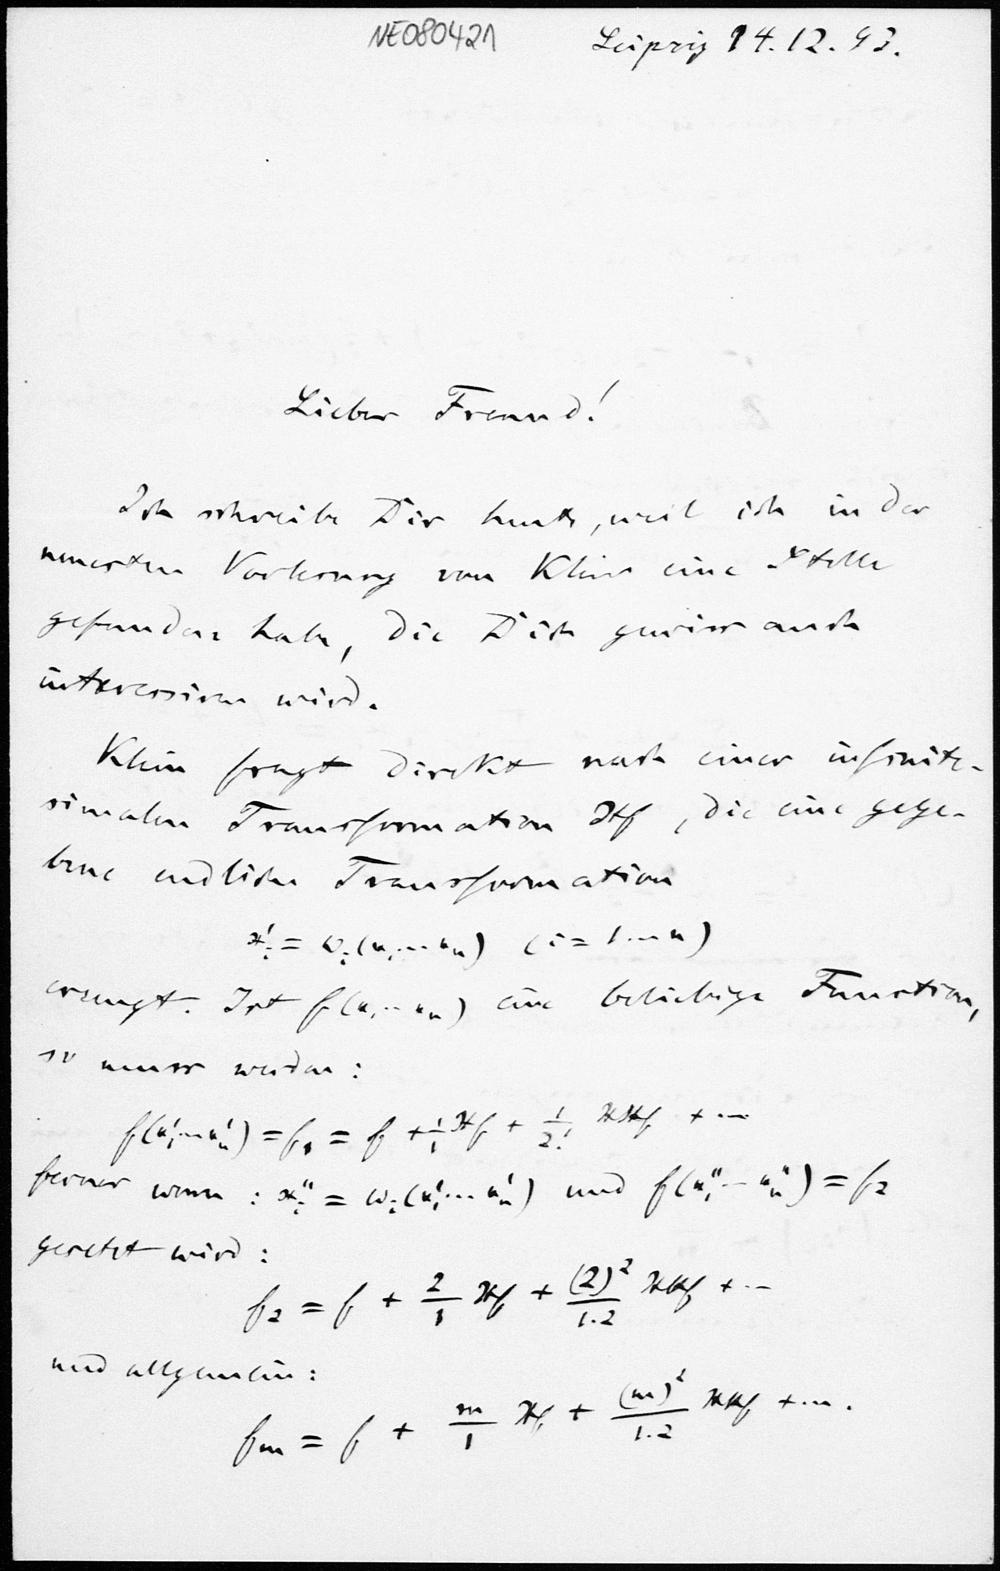 NE080421
Leipzig 14.12.93.
Lieber Freund!
Ich schreibe Dir heute, weil ich in der
neuesten Vorlesung von Klein eine Stelle
gefunden habe, die Dich gewiss auch
interessiren wird.
Klein fragt direkt nach einer infinite-
simalen Transformation Xf, die eine gege-
bene endliche Transformation
x'ᵢ = ωᵢ(x₁...xₙ) (i = 1...n)
erzeugt. Ist f(x₁...xₙ) eine beliebige Function,
so muss werden:
f(x'₁...x'ₙ) = f₁ = f + 1/1 Xf + 1/2! XXf + ...
ferner wenn: x''ᵢ = ωᵢ(x'₁...x'ₙ) und f(x''₁...x''ₙ) = f₂
gesetzt wird:
f₂ = f + 2/1 Xf + (2)²/1.2 XXf + ...
und allgemein:
fₘ = f + m/1 Xf + (m)²/1.2 XXf + ....